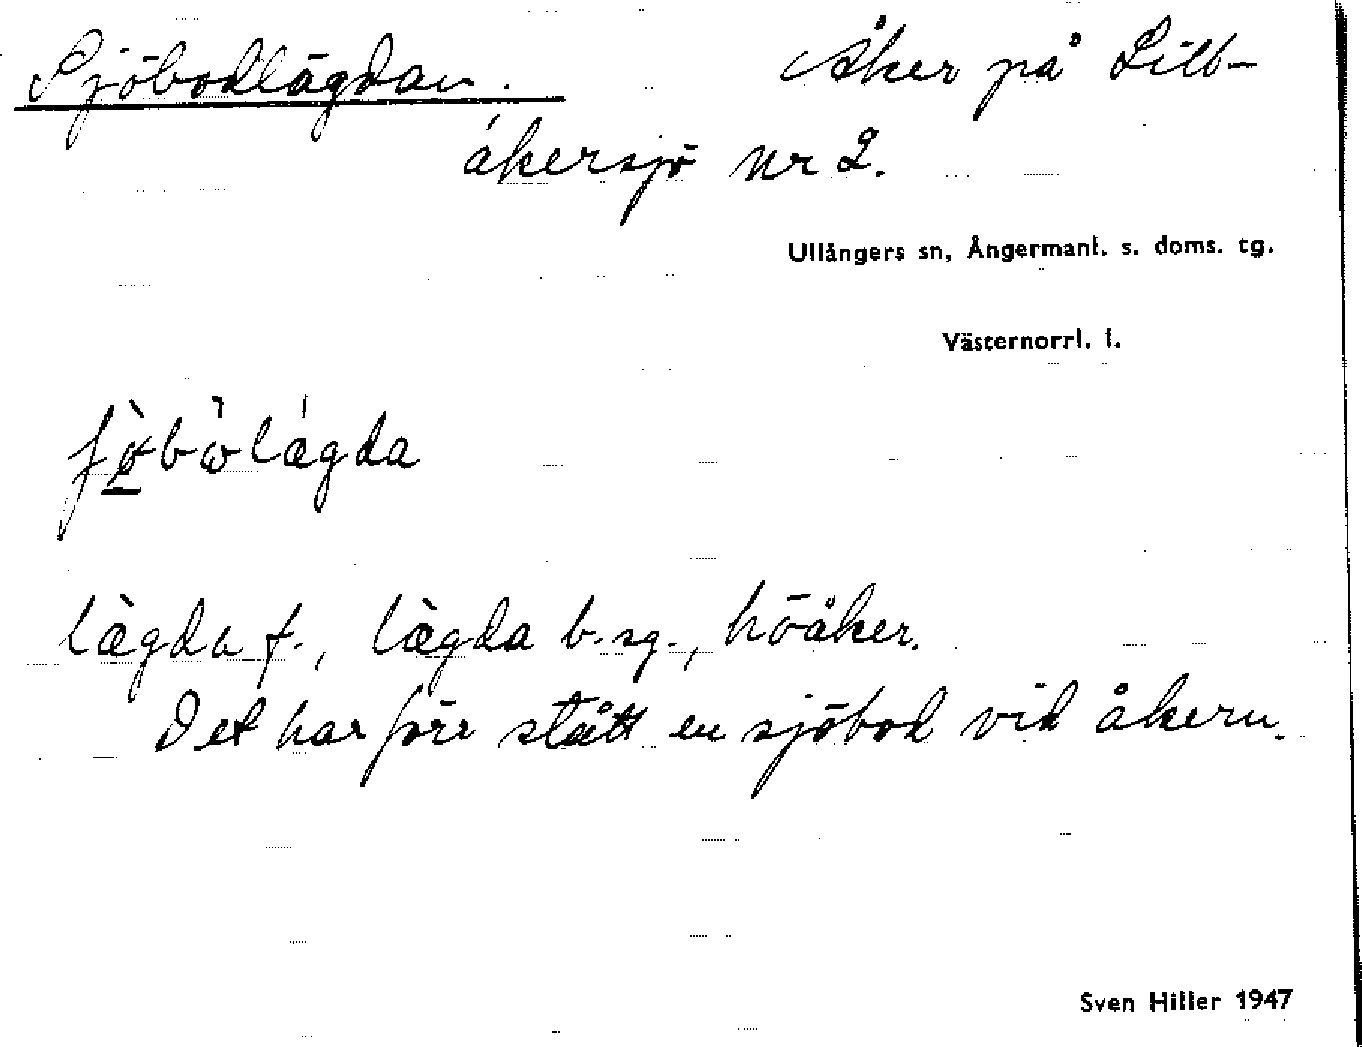 Sjöbodlägdan. Åker på Lill-
åkersjö nr 2.
Ullångers sn, Ångermanl. s. doms. tg.
Västernorrl. l.
lægda f., lægda b. sg., höåker.
Det har förr stått en sjöbod vid åkern.
Sven Hiller 1947